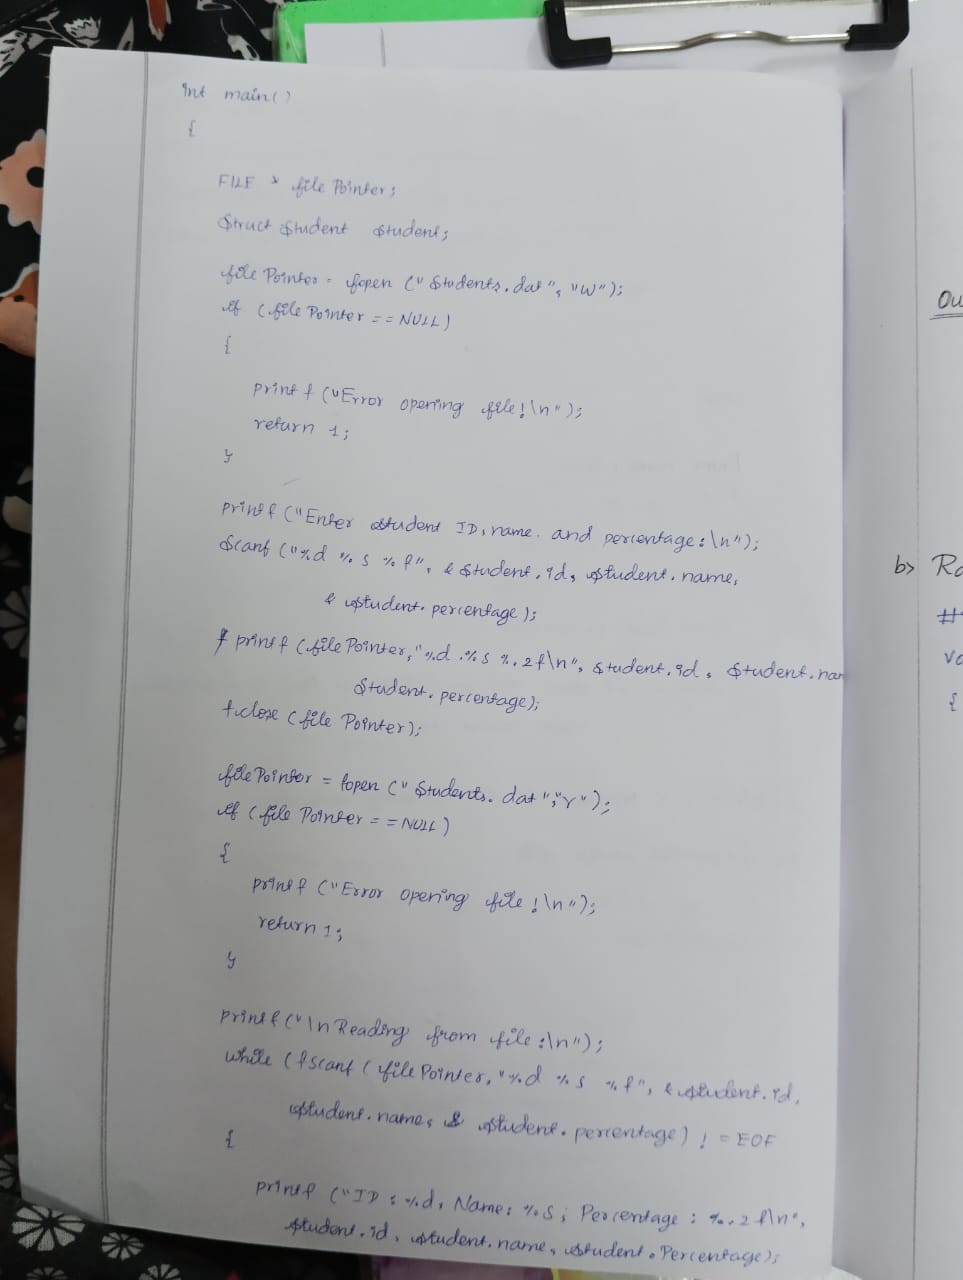 int main()
{
FILE * file Pointer;
Struct Student Student;
file Pointer = fopen ("Students.dat", "w");
if (file Pointer == NULL)
{
printf ("Error opening file!\n");
return 1;
}
printf ("Enter student ID, name. and percentage:\n");
Scanf ("%d %s %f", & Student.id, student.name,
& student.percentage);
fprintf (file Pointer, "%d %s %.2f\n", Student.id, Student.nam
Student.percentage);
fclose (file Pointer);
file Pointer = fopen ("Students.dat", "r");
if (file Pointer == NULL)
{
printf ("Error opening file!\n");
return 1;
}
printf("\n Reading from file:\n");
while (fscanf (file Pointer, "%d %s %f", & student.id,
student.name, & student.percentage) != EOF
{
printf ("ID: %d, Name: %s, Percentage: %.2f\n",
student.id, student.name, student.Percentage);
Ou
b> Ro
#
vo
{